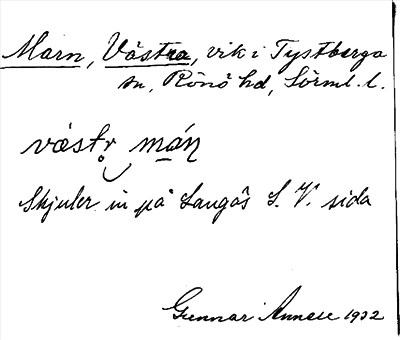 Marn, Västra, vik i Tystberga
sn, Rönö hd, Sörml. l.
västr̥ mán
Skjuler in på Langös S. V. sida
Gunnar Annell 1932